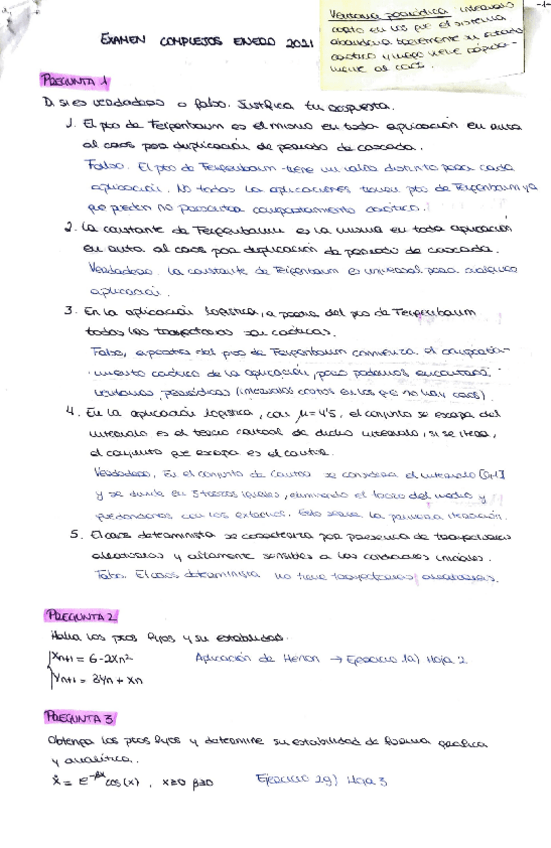 Ventana periódica: intervalo
corto en los que el sistema
abandona brevemente su estado
caótico y luego viene rápida-
mente al caos.
-1-
EXAMEN COMPLEJOS ENERO 2021
PREGUNTA 1
D. si es verdadero o falso. Justifica tu respuesta.
1. El pto de Feigenbaum es el mismo en toda aplicación en ruta
al caos por duplicación de periodo de cascada.
Falso. El pto de Feigenbaum tiene un valor distinto para cada
aplicación. No todas las aplicaciones tienen pto de Feigenbaum ya
que pueden no presentar comportamiento caótico.
2. La constante de Feigenbaum es la misma en toda aplicación
en ruta al caos por duplicación de periodo de cascada.
Verdadero. La constante de Feigenbaum es universal para cualquier
aplicación.
3. En la aplicación logística, a partir del pto de Feigenbaum
todas las trayectorias son caóticas.
Falso, a partir del pto de Feigenbaum comienza el comporta-
miento caótico de la aplicación, pero podemos encontrarnos
ventanas periódicas (intervalos cortos en los que no hay caos).
4. En la aplicación logística, con μ=4'5, el conjunto se escapa del
intervalo es el tercio central de dicho intervalo, si se itera,
el conjunto que escapa es el cantor.
Verdadero, En el conjunto de Cantor se considera el intervalo [0,1]
y se divide en 3 trozos iguales, eliminando el trozo del medio y
quedándonos con los extremos. Esto sería la primera iteración.
5. El caos determinista se caracteriza por presencia de trayectorias
aleatorias y altamente sensibles a las condiciones iniciales.
Falso. El caos determinista no tiene trayectorias aleatorias.
PREGUNTA 2
Halla los ptos fijos y su estabilidad.
Xn+1 = 6-2Xn² Aplicación de Henon → Ejercicio 1a) Hoja 2
Yn+1 = 3Yn + Xn
PREGUNTA 3
Obtenga los ptos fijos y determine su estabilidad de forma gráfica
y analítica.
ẋ = e^-βx cos(x), x≥0 β≥0 Ejercicio 2g) Hoja 3